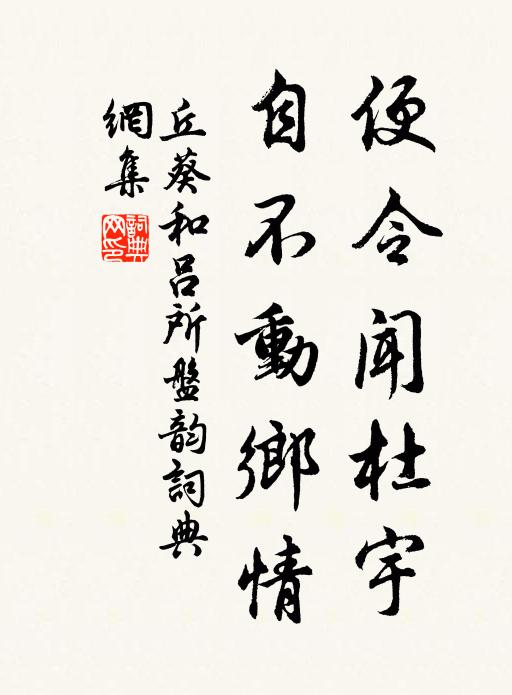 便令闻杜宇
自不動鄉情
丘葵和呂所盤韵詞典
網集
詞典
网印